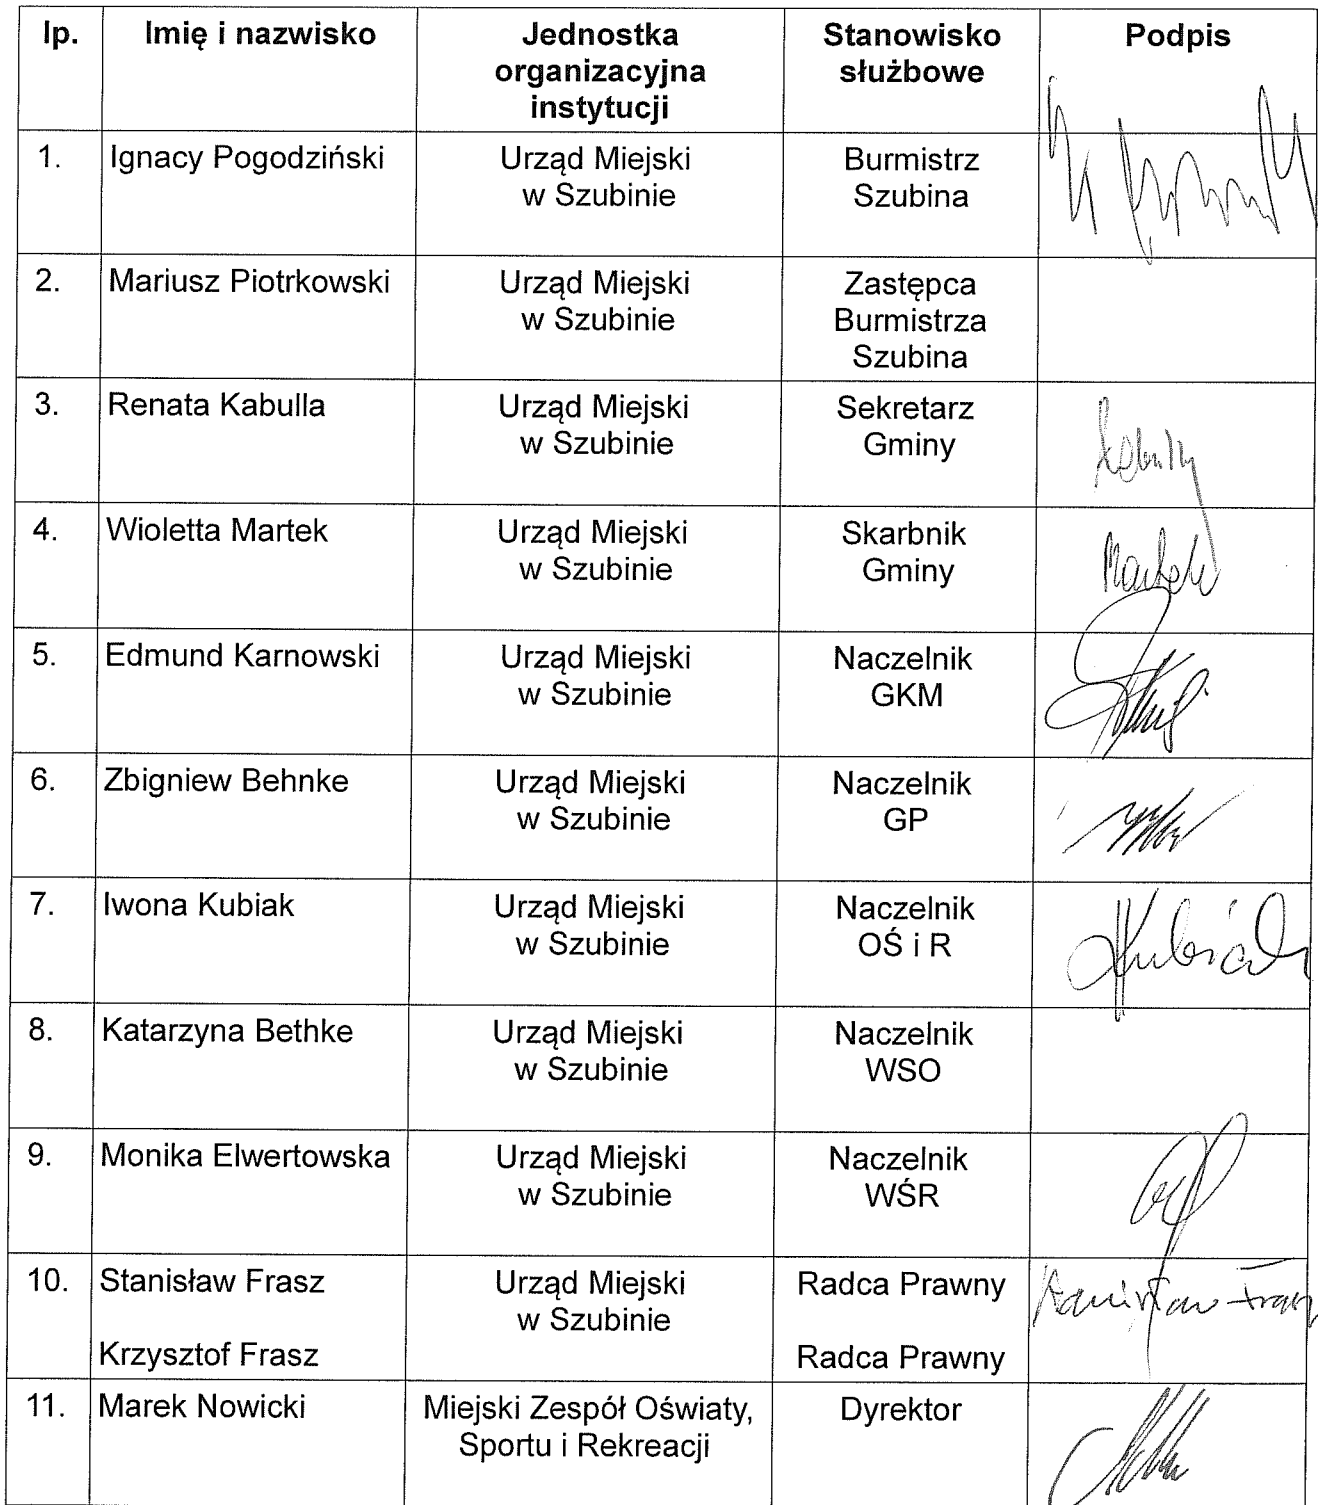 lp. Imię i nazwisko Jednostka organizacyjna instytucji Stanowisko służbowe Podpis
1. Ignacy Pogodziński Urząd Miejski w Szubinie Burmistrz Szubina
2. Mariusz Piotrkowski Urząd Miejski w Szubinie Zastępca Burmistrza Szubina
3. Renata Kabulla Urząd Miejski w Szubinie Sekretarz Gminy
4. Wioletta Martek Urząd Miejski w Szubinie Skarbnik Gminy Martek
5. Edmund Karnowski Urząd Miejski w Szubinie Naczelnik GKM
6. Zbigniew Behnke Urząd Miejski w Szubinie Naczelnik GP
7. Iwona Kubiak Urząd Miejski w Szubinie Naczelnik OŚ i R Kubiak
8. Katarzyna Bethke Urząd Miejski w Szubinie Naczelnik WSO
9. Monika Elwertowska Urząd Miejski w Szubinie Naczelnik WŚR
10. Stanisław Frasz Urząd Miejski w Szubinie Radca Prawny Stanisław Frasz
Krzysztof Frasz Radca Prawny
11. Marek Nowicki Miejski Zespół Oświaty, Sportu i Rekreacji Dyrektor